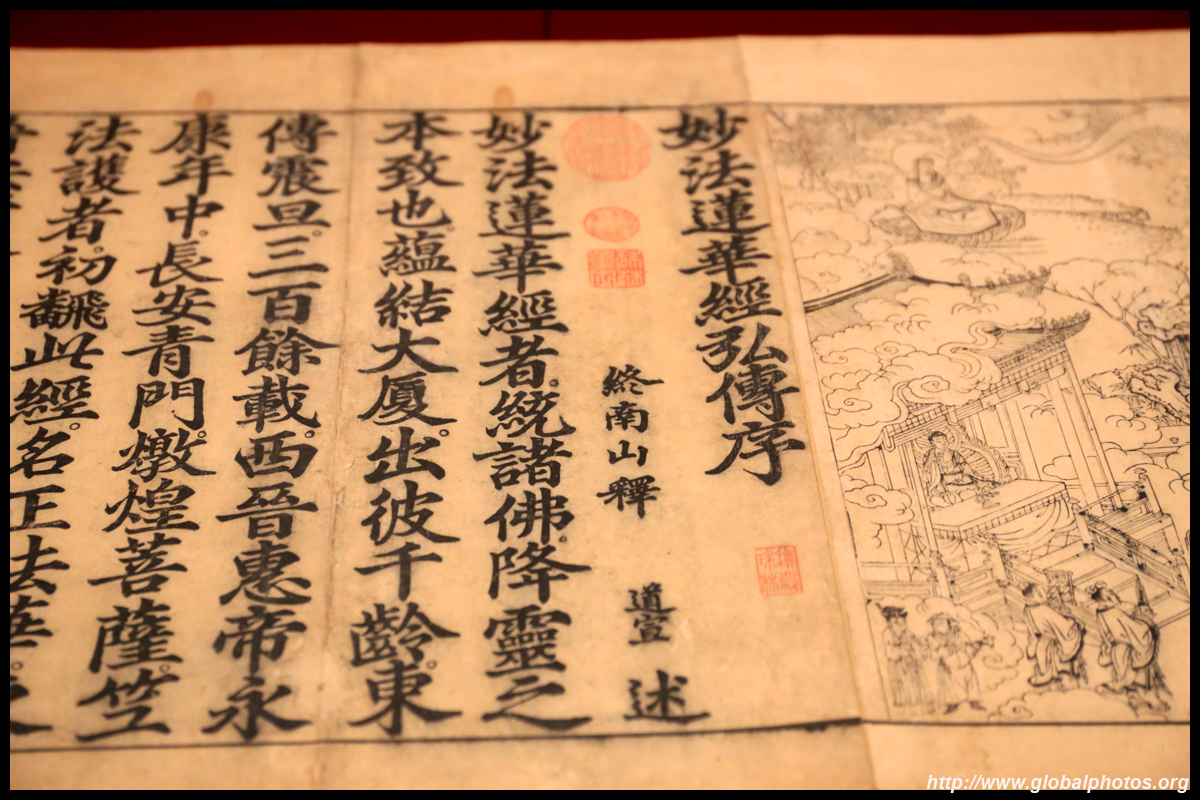 妙法蓮華經弘傳序
終南山釋 道宣 述
妙法蓮華經者。統諸佛。降靈之
本致也。蘊結大厦。出彼千齡。東
傳震旦。三百餘載。西晉惠帝永
康年中。長安青門。燉煌菩薩竺
法護者。初飜此經。名正法華。
http://www.globalphotos.org